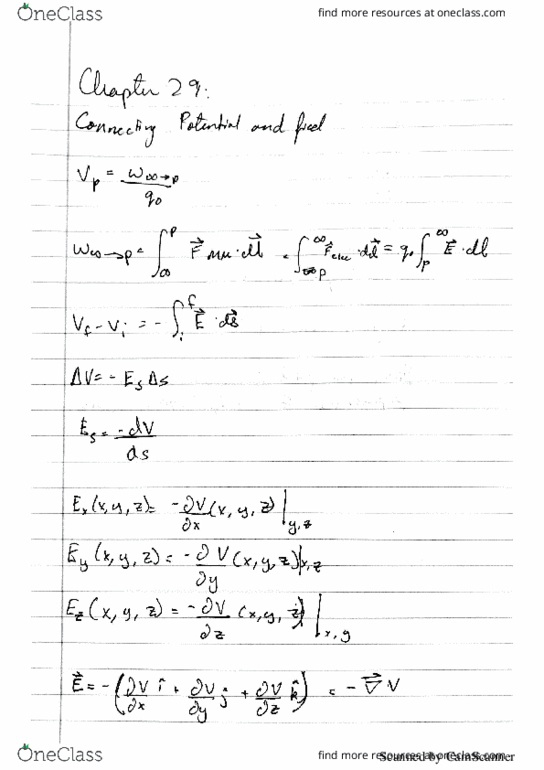 OneClass
find more resources at oneclass.com
Chapter 29:
Connecting Potential and field
V_p = W_∞→p / q_0
W_∞→p = ∫_∞^p F⃗ · dl⃗ = ∫_p^∞ F⃗_elec · dl⃗ = q_0 ∫_p^∞ E⃗ · dl
V_f - V_i = - ∫_i^f E⃗ · ds⃗
ΔV = - E_s Δs
E_s = -dV / ds
E_x (x, y, z) = -∂V/∂x (x, y, z) |_y,z
E_y (x, y, z) = -∂V/∂y (x, y, z) |_x,z
E_z (x, y, z) = -∂V/∂z (x, y, z) |_x,y
E⃗ = - (∂V/∂x î + ∂V/∂y ĵ + ∂V/∂z k̂) = - ∇⃗ V
OneClass
find more resources at oneclass.com
Scanned by CamScanner